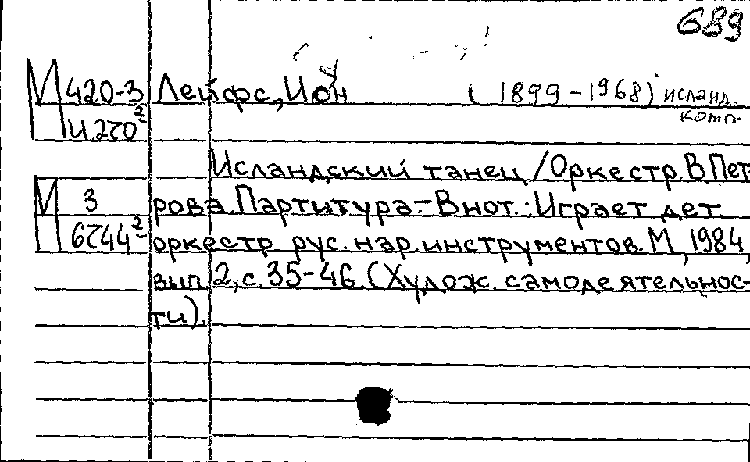 689
М 420-3 Лейфс, Йон (1899-1968) исланд.
И 270² комп.
Исландский танец / Оркестр. В. Пет-
М 3 рова. Партитура.- В нот.: Играет дет.
6244-² оркестр рус. нар. инструментов. М., 1984,
вып. 2, с. 35-46. (Худож. самодеятельнос-
ти).